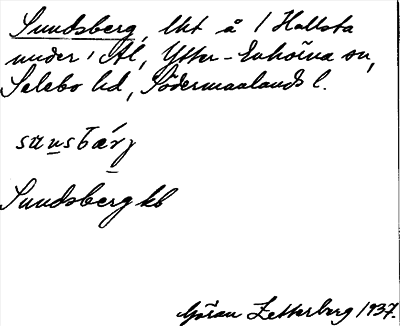 Sundsberg, lht å 1 Hallsta
under 1 Al, Ytter-Enhörna sn,
Selebo hd, Södermanlands l.
sunsbärj
Sundsberg kb
Göran Zetterberg 1937.